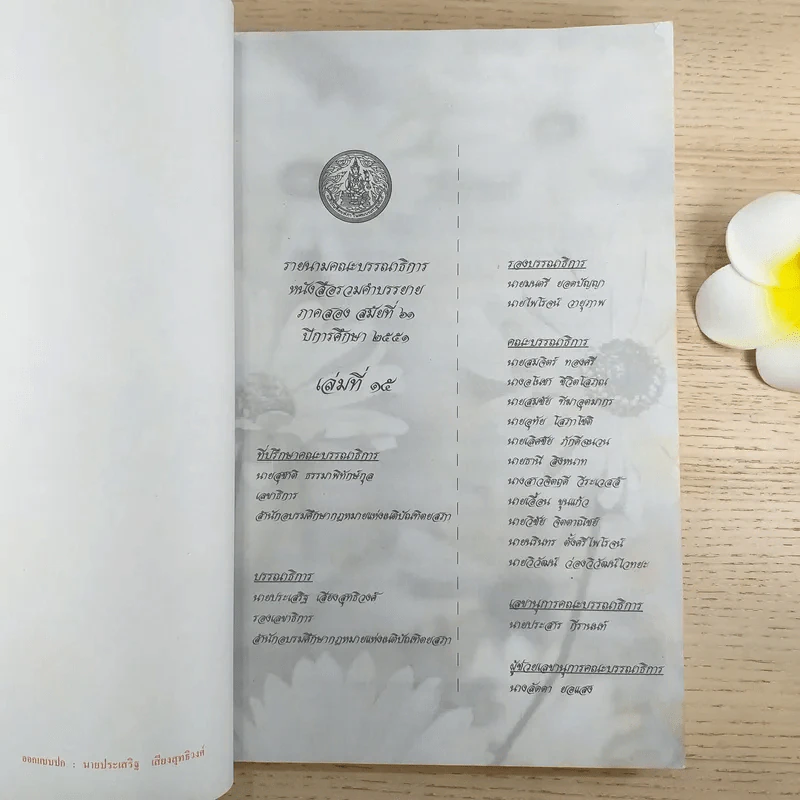 รายนามคณะบรรณาธิการ
หนังสือรวมคำบรรยาย
ภาคสอง สมัยที่ ๒๑
ปีการศึกษา ๒๕๕๑
เล่มที่ ๑๕
ที่ปรึกษาคณะบรรณาธิการ
นายสุชาติ ธรรมาพิทักษ์กุล
เลขาธิการ
สำนักอบรมศึกษากฎหมายแห่งเนติบัณฑิตยสภา
บรรณาธิการ
นายประเสริฐ เสียงสุทธิวงศ์
รองเลขาธิการ
สำนักอบรมศึกษากฎหมายแห่งเนติบัณฑิตยสภา
รองบรรณาธิการ
นายมนตรี ยอดปัญญา
นายไพโรจน์ วายุภาพ
คณะบรรณาธิการ
นายสมจิตร์ ทองศรี
นางอโนชา ชีวิตโสภณ
นายสมชัย ฑีฆาอุตมากร
นายอุทัย โสภาโชติ
นายเลิศชัย ภักดีฉนวน
นายธานี สิงหนาท
นางสาวจิตฤดี วีระเวสส์
นายเอื้อน ขุนแก้ว
นายวิชัย จิตตาณิชย์
นายนรินทร ตั้งศรีไพโรจน์
นายวิวัฒน์ ว่องวิวัฒน์ไวทยะ
เลขานุการคณะบรรณาธิการ
นายประสาร กีรานนท์
ผู้ช่วยเลขานุการคณะบรรณาธิการ
นางลัดดา ยอแสง
ออกแบบปก : นายประเสริฐ เสียงสุทธิวงศ์